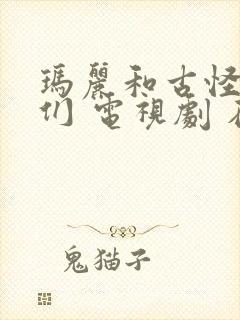 瑪麗和古怪
们 電視劇
鬼猫子